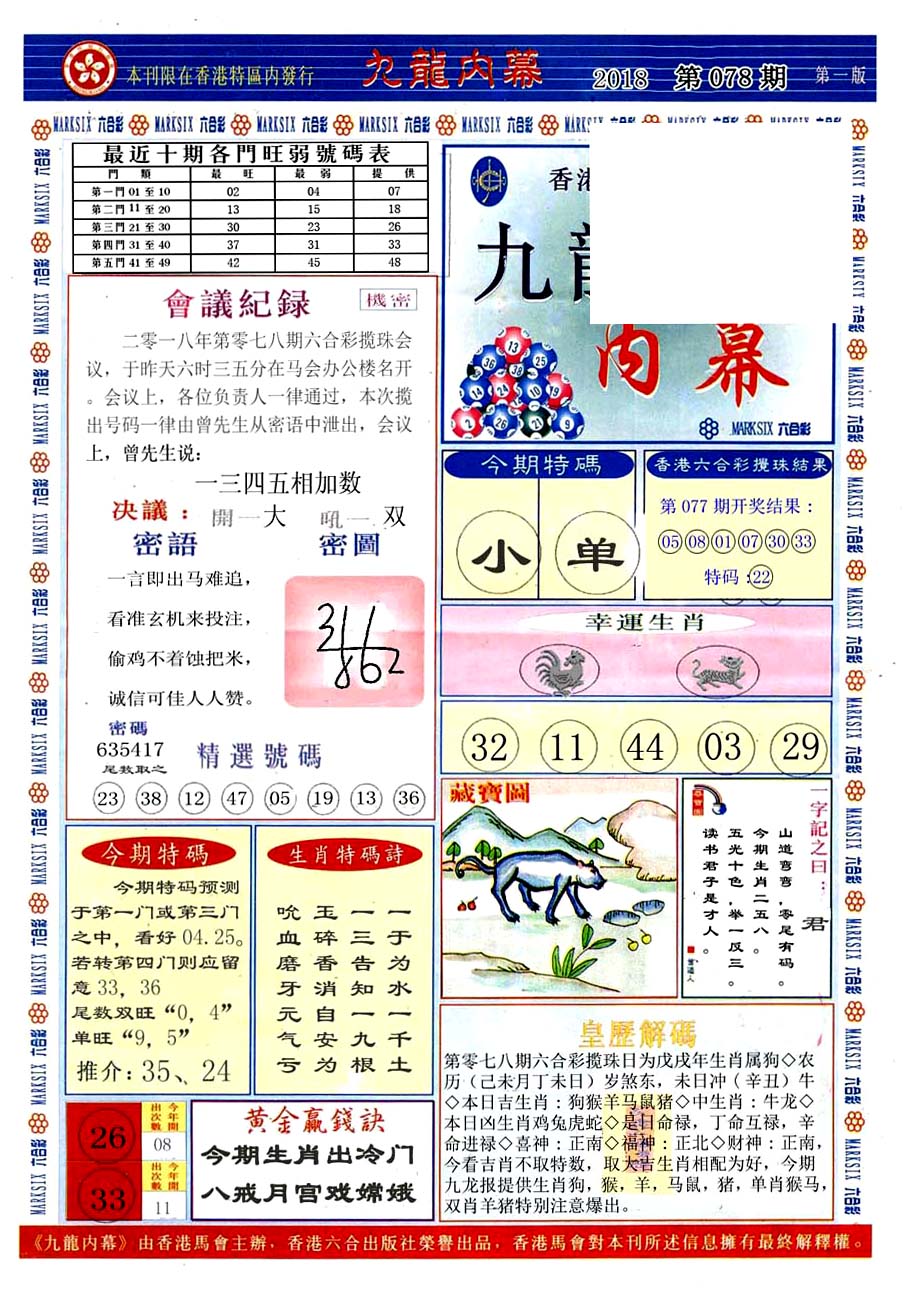 本刊限在香港特區内發行
九龍内幕
2018 第078期
第一版
MARKSIX 六合彩
最近十期各門旺弱號碼表
門類 最旺 最弱 提供
第一門 01 至 10 02 04 07
第二門 11 至 20 13 15 18
第三門 21 至 30 30 23 26
第四門 31 至 40 37 31 33
第五門 41 至 49 42 45 48
會議紀録
機密
二零一八年第零七八期六合彩揽珠会
议，于昨天六时三五分在马会办公楼名开
。会议上，各位负责人一律通过，本次揽
出号码一律由曾先生从密语中泄出，会议
上，曾先生说：
一三四五相加数
决議：開一大 吼一双
密語
密圖
一言即出马难追，
看准玄机来投注，
偷鸡不着蚀把米，
诚信可佳人人赞。
密碼
635417
尾数取之
精選號碼
23 38 12 47 05 19 13 36
香港
九
内幕
13
36 38 25
24 10 19
2 26 21 9
MARKSIX 六合彩
今期特碼
小 单
香港六合彩攪珠結果
第077期开奖结果：
05 08 01 07 30 33
特码：22
幸運生肖
32 11 44 03 29
藏寶圖
一字記之曰：君
山道弯弯，零尾有码。
今期生肖二五八。
五光十色，举一反三。
读书君子是才人。
今期特碼
今期特码预测
于第一门或第三门
之中，看好04.25。
若转第四门则应留
意33，36
尾数双旺“0，4”
单旺“9，5”
推介：35、24
生肖特碼詩
一于为水一千土
一三告知一九根
玉碎香消自安为
吮血磨牙元气亏
26
今年開出次數
08
33
今年開出次數
11
黄金赢錢訣
今期生肖出冷门
八戒月宫戏嫦娥
皇歷解碼
第零七八期六合彩揽珠日为戊戌年生肖属狗◇农
历（己未月丁未日）岁煞东，未日冲（辛丑）牛
◇本日吉生肖：狗猴羊马鼠猪◇中生肖：牛龙◇
本日凶生肖鸡兔虎蛇◇是日命禄，丁命互禄，辛
命进禄◇喜神：正南◇福神：正北◇财神：正南，
今看吉肖不取特数，取大吉生肖相配为好，今期
九龙报提供生肖狗，猴，羊，马鼠，猪，单肖猴马，
双肖羊猪特别注意爆出。
《九龍内幕》由香港馬會主辦，香港六合出版社榮譽出品，香港馬會對本刊所述信息擁有最終解釋權。